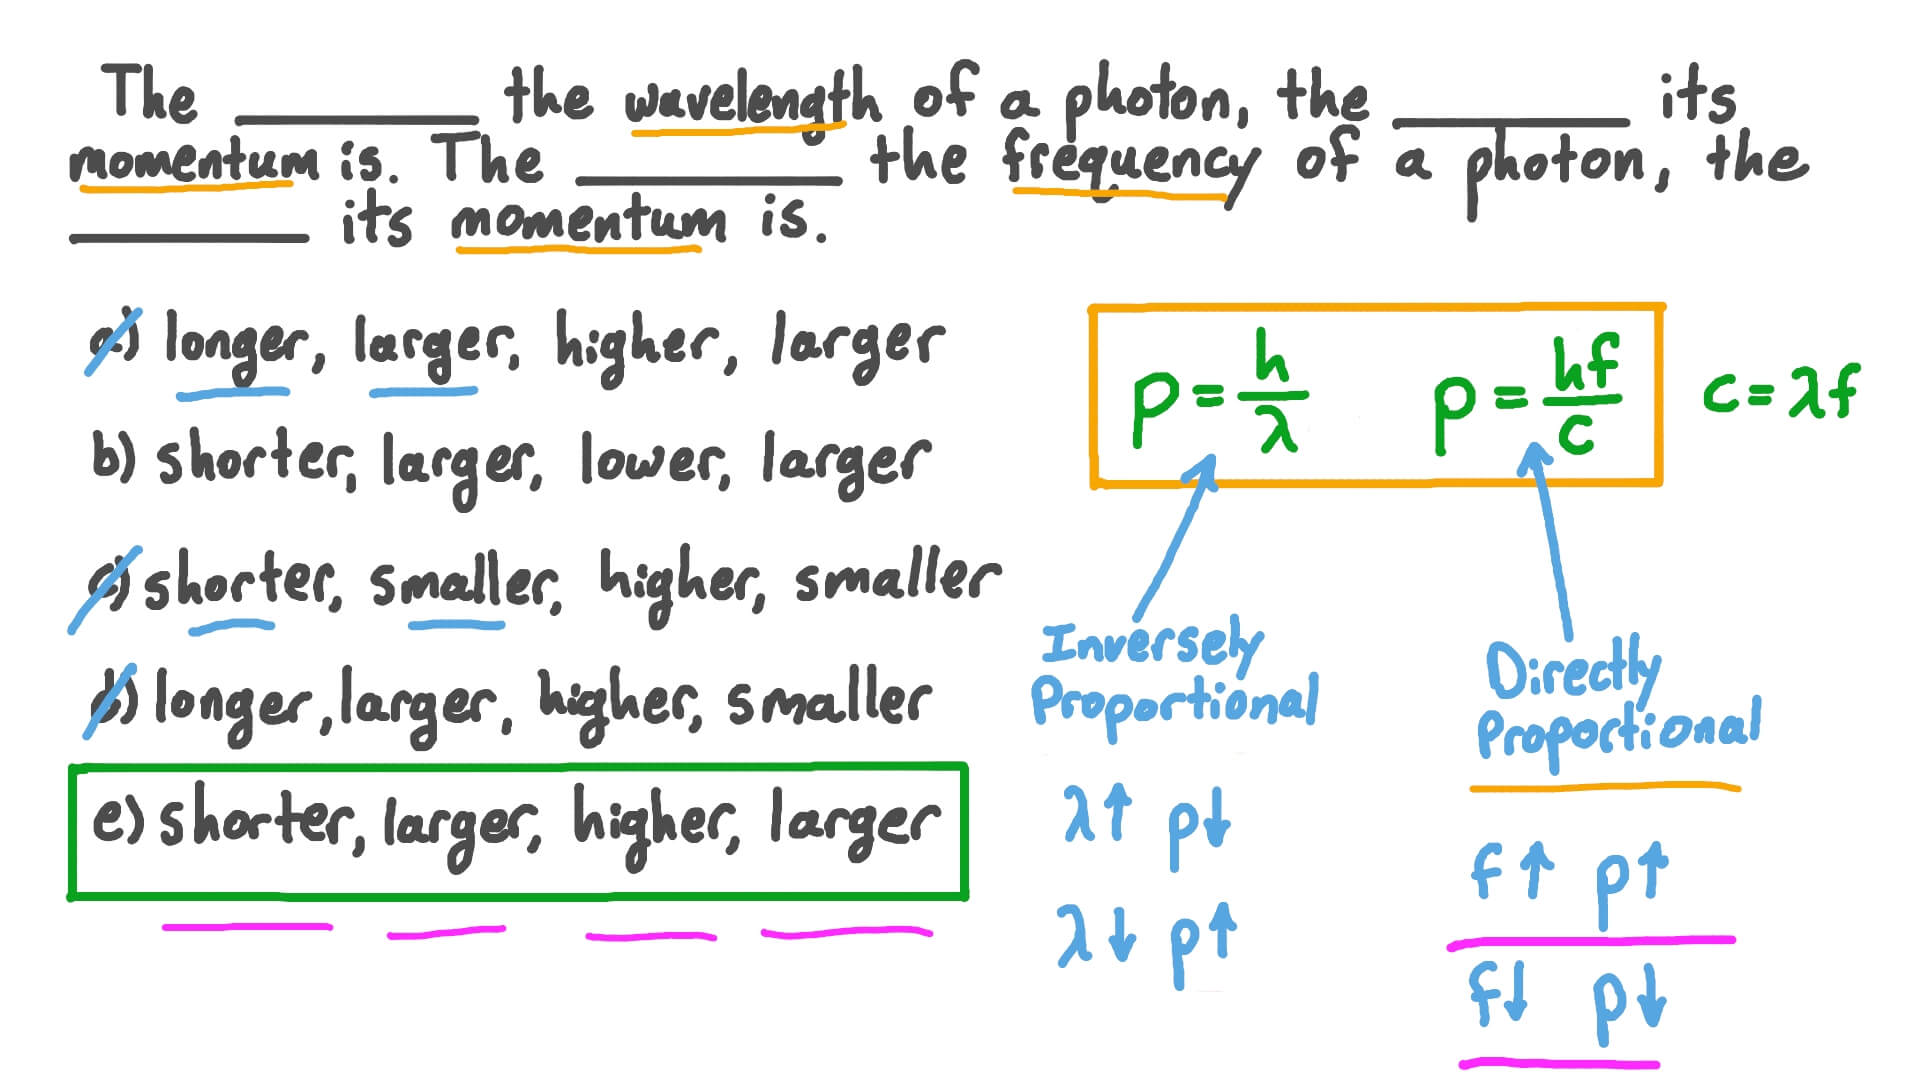 The ________ the wavelength of a photon, the ________ its
momentum is. The ________ the frequency of a photon, the
________ its momentum is.
a) longer, larger, higher, larger
b) shorter, larger, lower, larger
c) shorter, smaller, higher, smaller
d) longer, larger, higher, smaller
e) shorter, larger, higher, larger
p = h/λ p = hf/c c = λf
Inversely
Proportional
λ↑ p↓
λ↓ p↑
Directly
Proportional
f↑ p↑
f↓ p↓